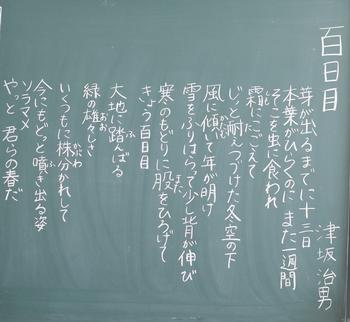 百日目
津坂治男
芽が出るまでに十三日
本葉がひらくのに また一週間
そこを虫に食われ
霜にこごえて
じっと耐えつづけた冬空の下
風に傾いて年が明け
雪をふりはらって少し背が伸び
寒のもどりに股をひろげて
きょう百日目
大地に踏んばる
緑の雄々しさ
いくつもに株分かれして
今にもどっと噴き出る姿
ソラマメ
やっと 君らの春だ